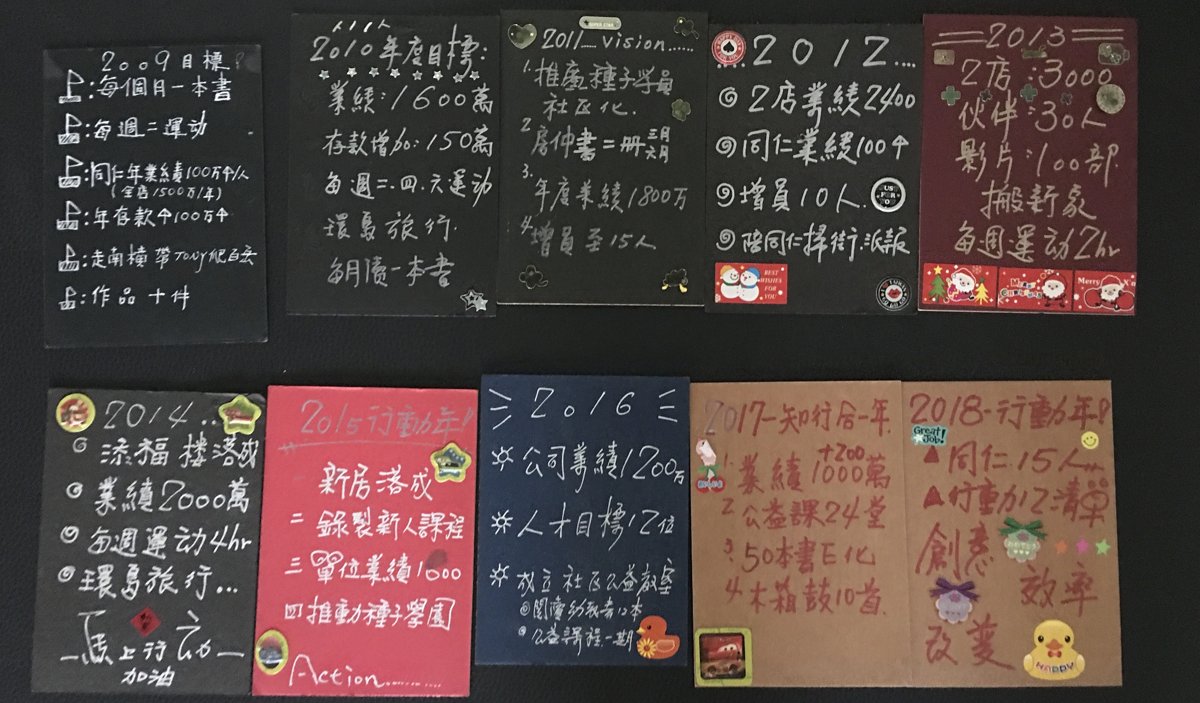 2009目標
:每個月一本書
:每週二運动
:同仁年業績100万/人
(全店1500万/年)
:年存款100万
:走南橫 帶Tony爬百岳
:作品十件
2010年度目標:
業績:1600萬
存款增加:150萬
每週二.四.六運动
環島旅行.
每月讀一本書
SUPER STAR
2011 vision......
1.推廣種子學員
社区化.
2.房仲書二冊三月
六月
3.年度業績1800万
4.增員至15人
...2012....
2店業績2400
同仁業績100
增員10人
陪同仁掃街.派報
BEST
WISHES
FOR
YOU
2013
2店:3000
伙伴:30人
影片:100部
搬新家
每週運动2hr
Merry
Christmas
Merry X'm
2014...
添福樓落成
業績2000萬
每週運动4hr
環島旅行...
馬上行动
加油
2015行動年!
新居落成
二 錄製新人課程
三 單位業績1600
四推動種子學園
Action......
2016
公司業績1200万
人才目標12位
成立社区公益教室
公益課程一期
2017-知行合一年
1.業績1000萬
+200
2公益課24堂
3.50本書E化
4木箱鼓10首
2018-行動年!
Great
Job!
同仁15人...
行動力12清單
創意
效率
改變
HAPPY